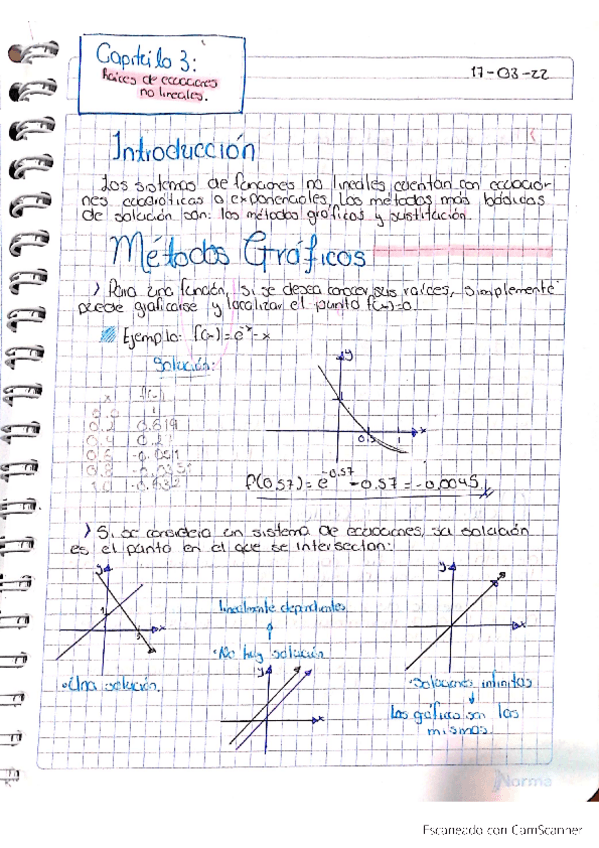 Capítulo 3:
Raíces de ecuaciones
no lineales.
17-03-22
Introducción
Los sistemas de funciones no lineales cuentan con ecuacio-
nes cuadráticas o exponenciales, Los métodos más básicos
de solución son: los métodos gráficos y sustitución.
Métodos Gráficos
> Para una función, si se desea conocer sus raíces, simplemente
puede graficarse y localizar el punto f(x)=0.
Ejemplo: f(x)=e⁻ˣ-x
Solución:
x f(x)
0.0 1
0.2 0.619
0.4 0.27
0.6 -0.051
0.8
1.0 -0.632
y
1
0.5 1 x
f(0.57)=e^-0.57 -0.57=-0.0045
> Si se considera un sistema de ecuaciones, su solución
es el punto en el que se intersectan:
y
x
•Una solución.
linealmente dependientes
•No hay solución
y
x
y
x
•Soluciones infinitas
Las gráficas son las
mismas.
Norma
Escaneado con CamScanner